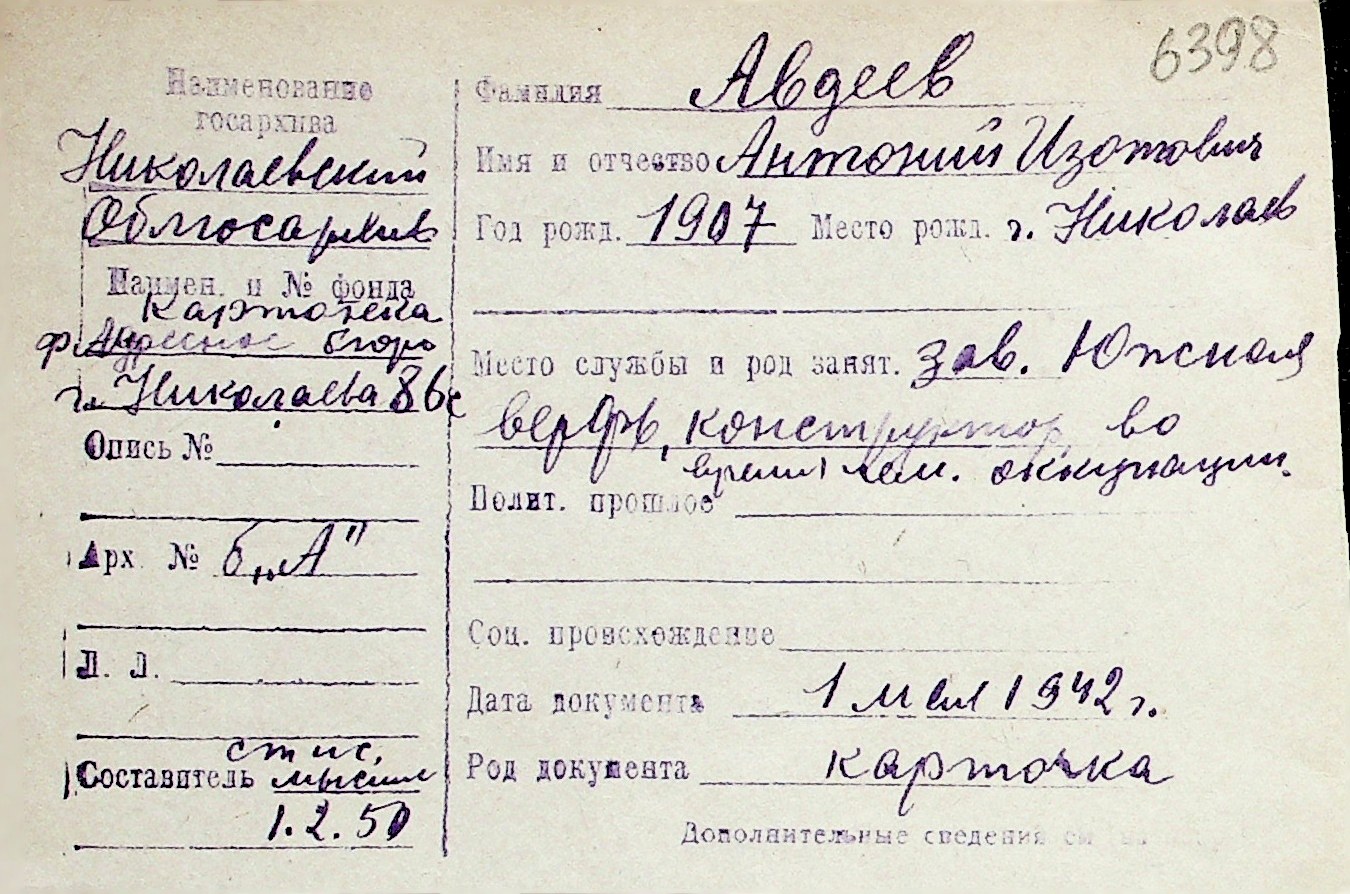 6398
Наименование
госархива
Николаевский
Облгосархив
Наимен. и № фонда
Картотека
ф. Адресное бюро
г. Николаева 86с
Опись №
Арх. № б. „А"
Л. Л.
Составитель
1.2.50
Фамилия Авдеев
Имя и отчество Антоний Изотович
Год рожд. 1907 Место рожд. г. Николаев
Место службы и род занят. зав. Южная
верфь, конструктор во
время нем. оккупации.
Полит. прошлое
Соц. происхождение
Дата документа 1 мая 1942 г.
Род документа карточка
Дополнительные сведения